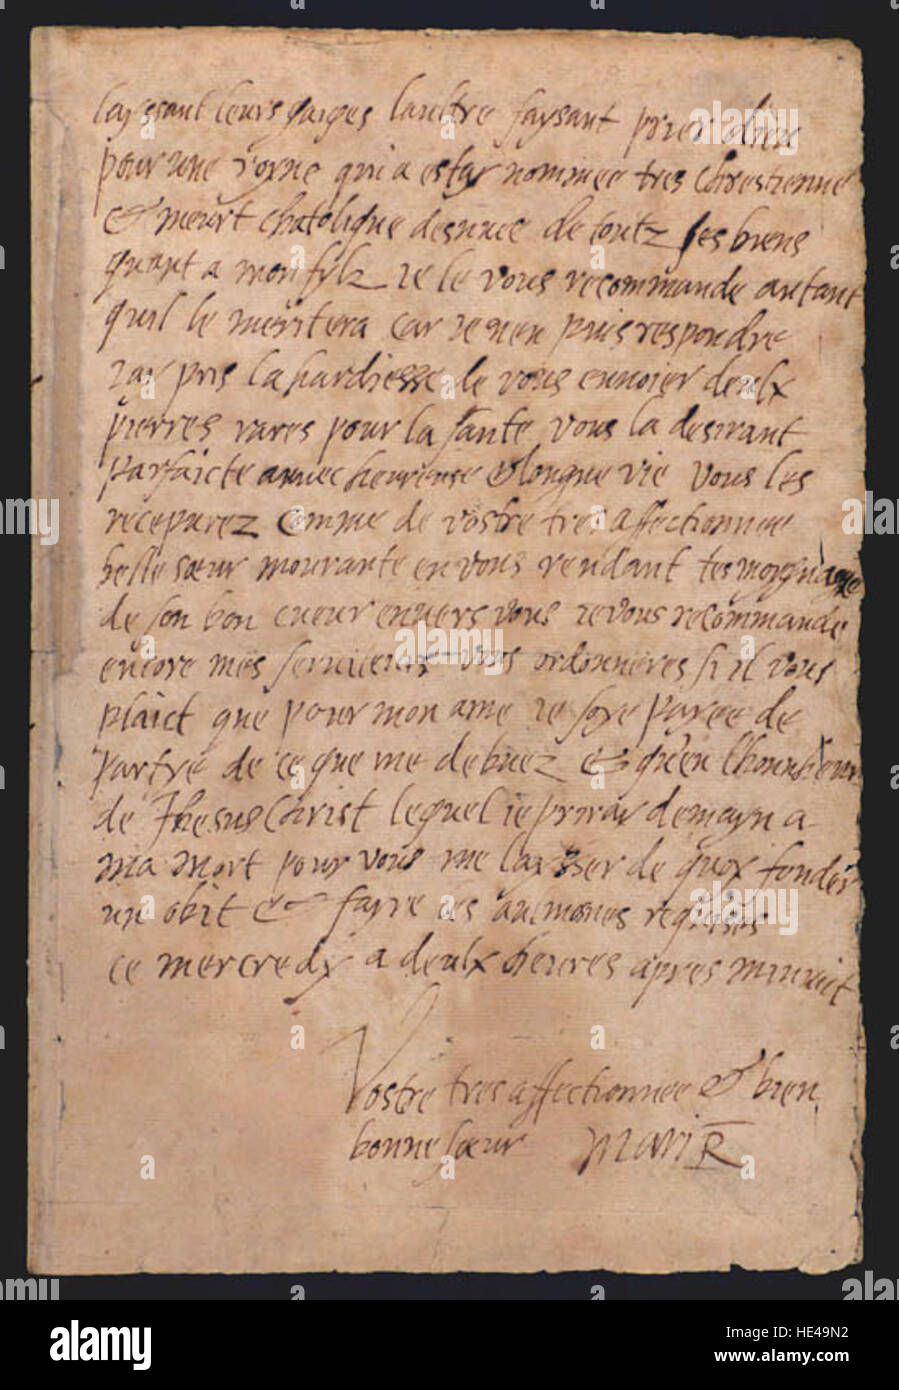 layssant leurs gaiges laultre faysant prier dieu
pour une royne qui a estay nommee tres chrestienne
& meurt chatolique desnuee de toutz ses biens
quant a mon fylz ie le vous recommande autant
quil le meritera car ie nen puis respondre
iay pris la hardiesse de vous envoier deulx
pierres rares pour la sante vous la desirant
parfaicte auuec heureuse & longue vie vous les
recepvrez comme de vostre tres affectionnee
belle sœur mourante en vous rendant tesmoygnage
de son bon cueur enuers vous ie vous recommande
encore mes seruiteurs vous ordonneres si il vous
plaict que pour mon ame ie soye payee de
partye de ce que me debuez & qu'en lhonneur
de Jhesus Christ lequel ie priray demayn a
ma mort pour vous me laysser de quoy fonder
un obit & fayre les aulmones requises
ce mercredy a deulx heures apres minuit
Vostre tres affectionnee & bien
bonne sœur Mari R
alamy
HE49N2
www.alamy.com